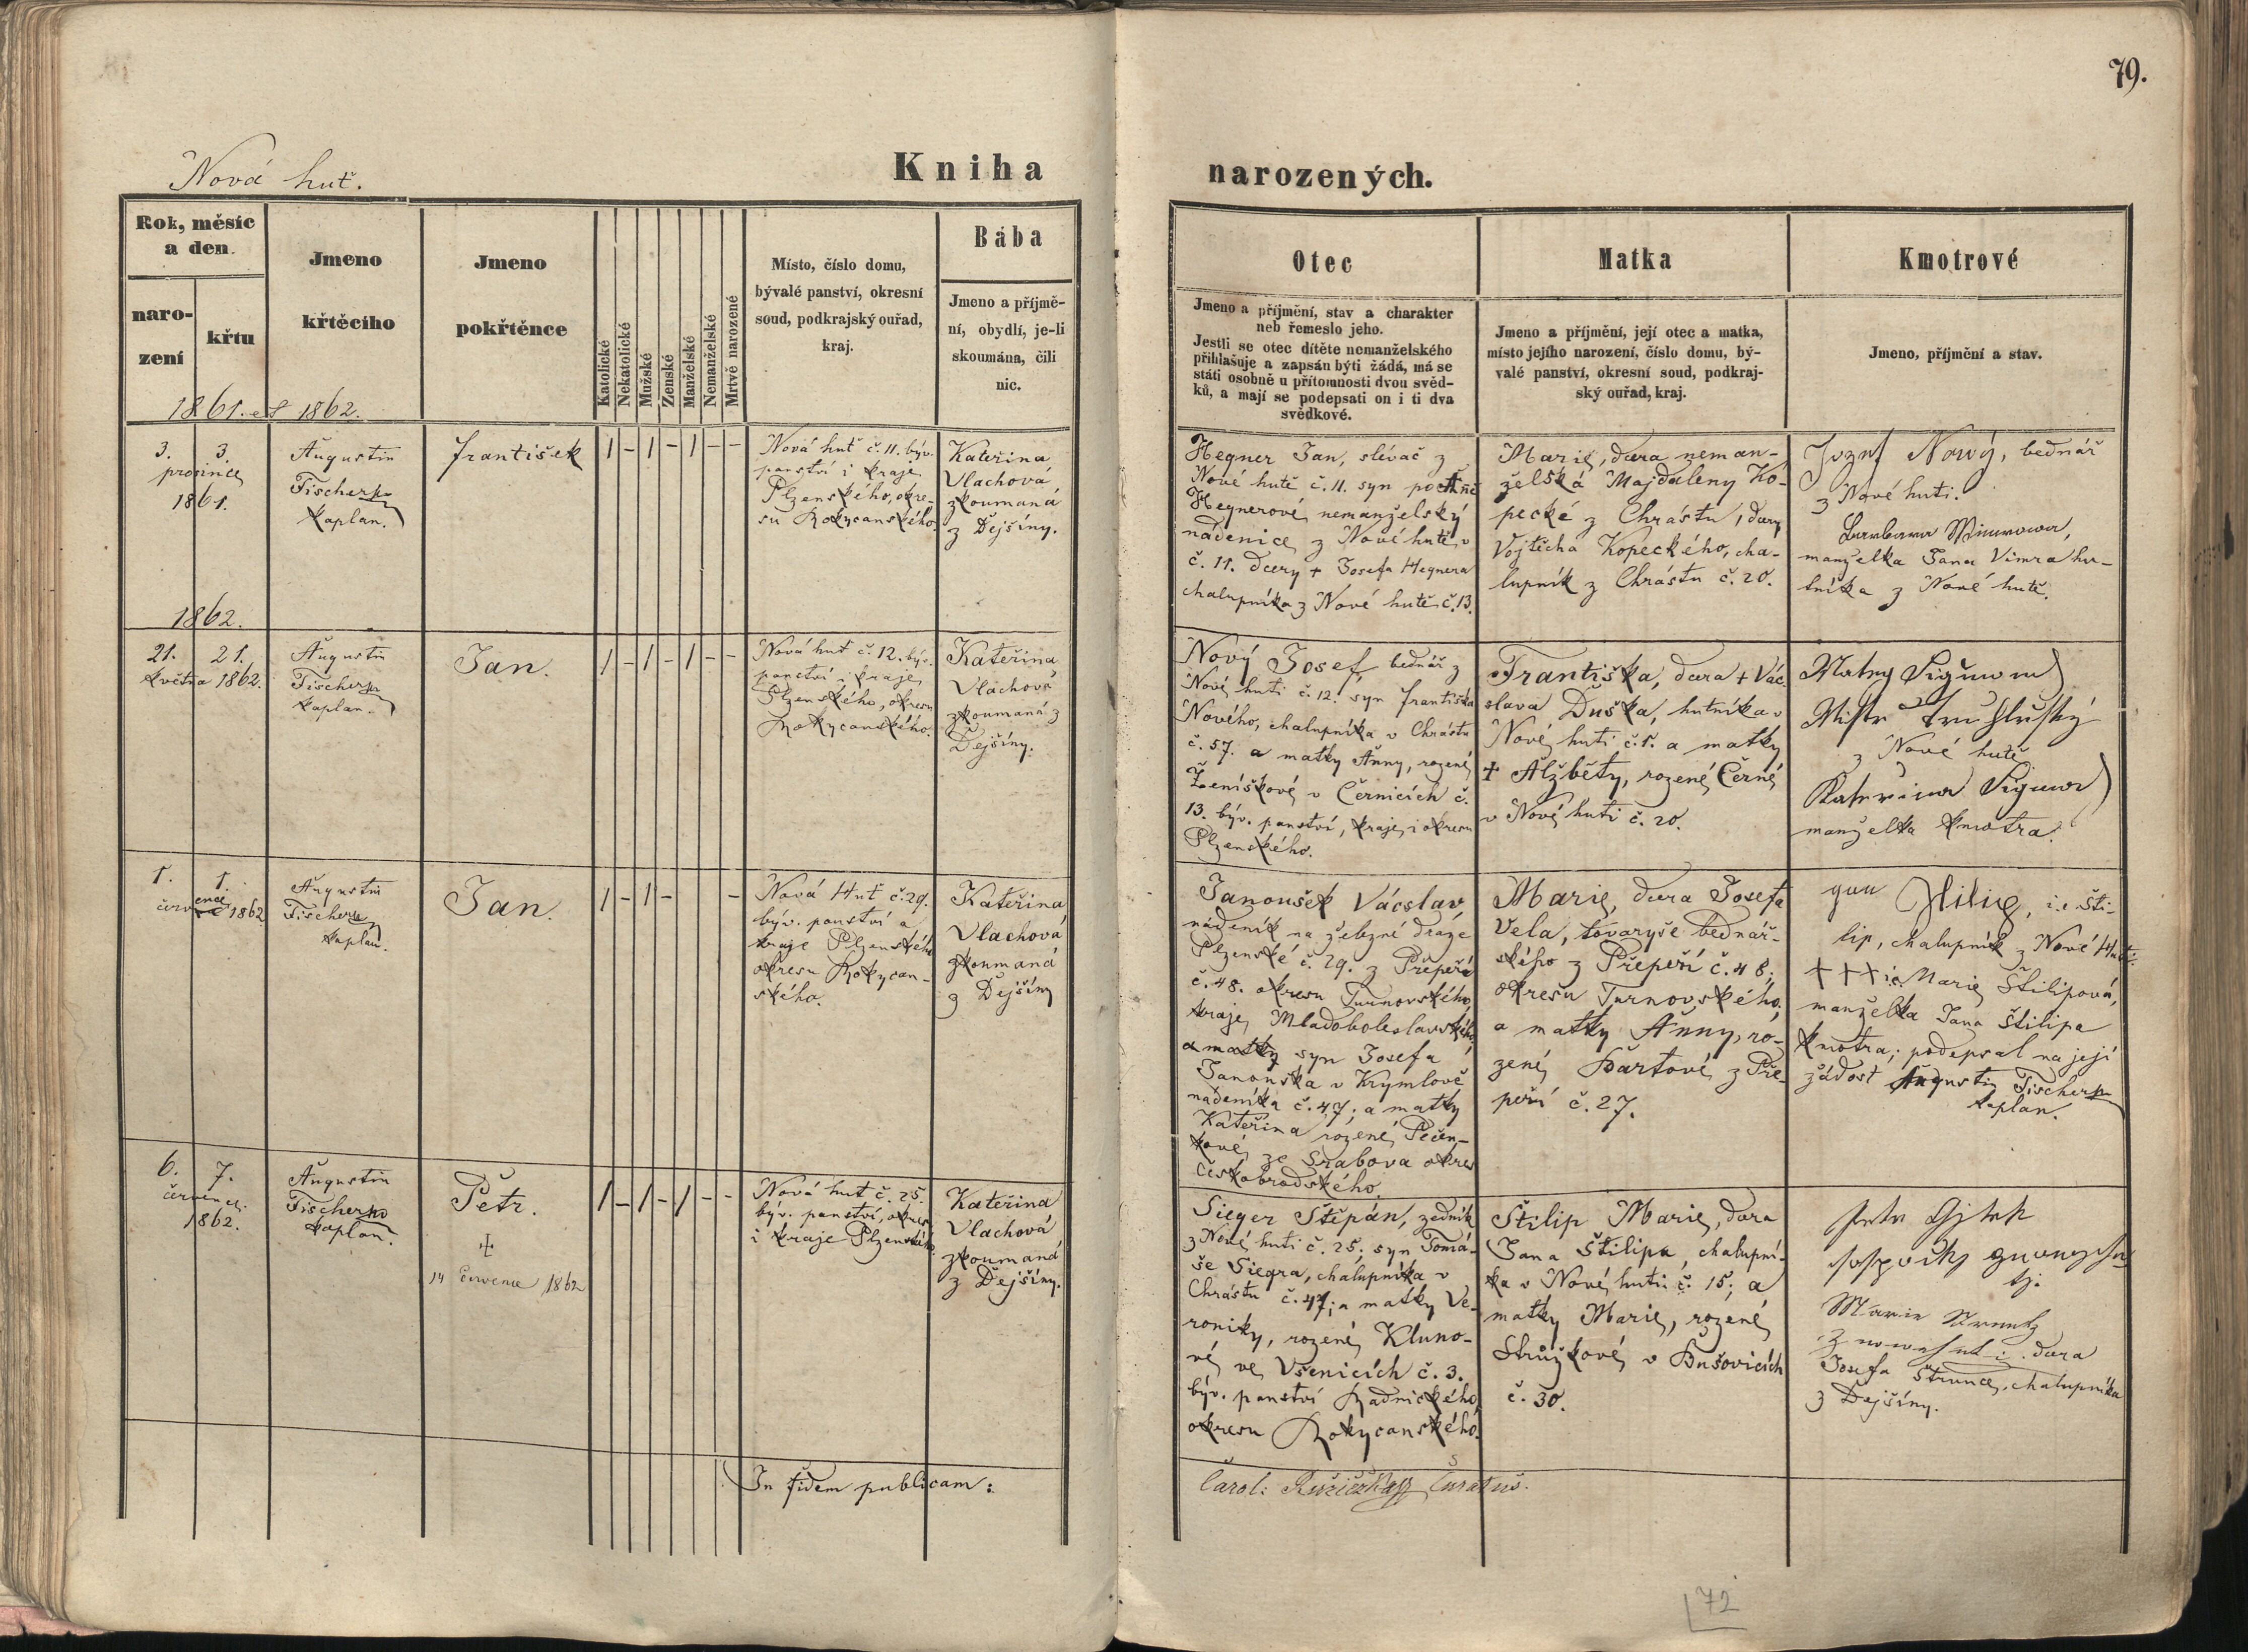 79.
Nová huť.
Kniha narozených.
Rok, měsíc
a den.
naro-
zení
křtu
1861. et 1862.
Jmeno
křtěcího
Jmeno
pokřtěnce
Katolické
Nekatolické
Mužské
Ženské
Manželské
Nemanželské
Mrtvě narozené
Místo, číslo domu,
bývalé panství, okresní
soud, podkrajský ouřad,
kraj.
Bába
Jmeno a příjmě-
ní, obydlí, je-li
skoumána, čili
nic.
Otec
Jmeno a příjmění, stav a charakter
neb řemeslo jeho.
Jestli se otec dítěte nemanželského
přihlašuje a zapsán býti žádá, má se
státi osobně u přítomnosti dvou svěd-
ků, a mají se podepsati on i ti dva
svědkové.
Matka
Jmeno a příjmění, její otec a matka,
místo jejího narození, číslo domu, bý-
valé panství, okresní soud, podkraj-
ský ouřad, kraj.
Kmotrové
Jmeno, příjmění a stav.
3. 3.
prosince
1861.
Augustin
Fischer
kaplan.
František
1 – 1 – 1 – –
Nová huť č. 11. býv.
panství i kraje
Plzenského, okre-
su Rokycanského.
Kateřina
Vlachová,
zkoumaná
z Dejšiny.
Hegner Jan, slévač z
Nové hutě č. 11. syn
Hegnerové nemanželský
nadenice z Nové hutě
č. 11. dcery + Josefa Hegnera
chalupníka z Nové hutě č. 13.
Marie, dcera neman-
želská Majdaleny Ko-
pecké z Chrástu, dcery
Vojtěcha Kopeckého, cha-
lupník z Chrástu č. 20.
Jozef Nowý, bednář
z Nové huti.
Barbara
manželka Jana Vimra hu-
tníka z Nové hutě.
1862.
21. 21.
května 1862.
Augustin
Fischer
kaplan.
Jan.
1 – 1 – 1 – –
Nová huť č. 12. býv.
panství i kraje
Plzenského, okresu
Rokycanského.
Kateřina
Vlachová
zkoumaná z
Dejšiny.
Nový Josef, bednář z
Nové huti č. 12. syn Františka
Nového, chalupníka v Chrástu
č. 57. a matky Anny, rozené
Ženíškové v Černicích č.
13. býv. panství, kraje i okresu
Plzenského.
Františka, dcera + Vác-
slava Duška, hutníka v
Nové huti č. 1. a matky
+ Alžběty, rozené Černé
v Nové huti č. 20.
z Nové hutě
manželka kmotra.
1. 1.
července 1862
Augustin
Fischer
kaplan.
Jan.
1 – 1 – –
Nová Huť č. 29.
býv. panství a
kraje Plzenského
okresu Rokycan-
ského.
Kateřina
Vlachová
zkoumaná
z Dejšiny
Janoušek Vácslav,
nádeník na železné dráze
Plzenské č. 29. z Přepeře
č. 48. okresu Turnovského
kraje Mladoboleslavského,
a matky syn Josefa
Janouška v Krymlově
nadeníka č. 47; a matky
Kateřina rozené Pečen-
kové ze Srabova okres
Českobrodského.
Marie, dcera Josefa
Vela, tovaryše bednář-
ského z Přepeří č. 48;
okresu Turnovského,
a matky Anny, ro-
zené Bartové z Pře-
peří č. 27.
i.e. Šti-
lip, chalupník z Nové Huti.
+++ i.e. Marie Štilipová,
manželka Jana Štilipa
kmotra; podepsal na její
žádost Augustin Fischer
kaplan.
6. 7.
července
1862.
Augustin
Fischer
kaplan.
Petr.
+
14 Července 1862
1 – 1 – 1 – –
Nová huť č. 25.
býv. panství, okres
i kraje Plzenského.
Kateřina
Vlachová
zkoumaná
z Dejšiny.
Sieger Štěpán, zedník
z Nové huti č. 25; syn Tomá-
še Siegra, chalupníka v
Chrástu č. 47; a matky Ve-
roniky, rozené Kluno-
vé ve Všenicích č. 3.
býv. panství Radnického,
okresu Rokycanského.
Štilip Marie, dcera
Jana Štilipa, chalupní-
ka v Nové huti č. 15; a
matky Marie, rozené
Strůžkové v Bušovicích
č. 30.
Marie
dcera
Josefa Štrunce, chalupníka
z Dejšiny.
In fidem publicam:
Carol: Růžiczka Curatus.
72